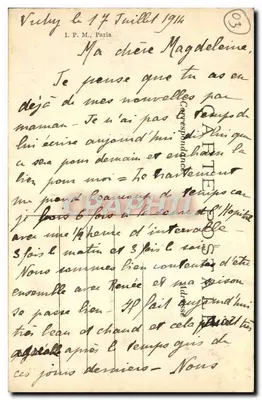 Vichy le 17 Juillet 1914
03
I. P. M., Paris
Ma chère Magdeleine,
Je pense que tu as eu
déjà de mes nouvelles par
maman - Je n'ai pas temps
lui écrire aujourd'hui
ce sera pour demain et embrasse la
bien pour moi = Le traitement
me prend beaucoup de temps car
je bois 6 fois à l'Hôpital
avec une 1/2 heure d'intervalle
3 fois le matin et 3 fois le soir
Nous sommes bien contentes d'être
ensemble avec Renée et ma saison
se passe bien - Il fait aujourd'hui
très beau et chaud et cela paraît très
agréable après le temps gris de
ces jours derniers - Nous
CARTE POSTALE
Correspondance
Adresse